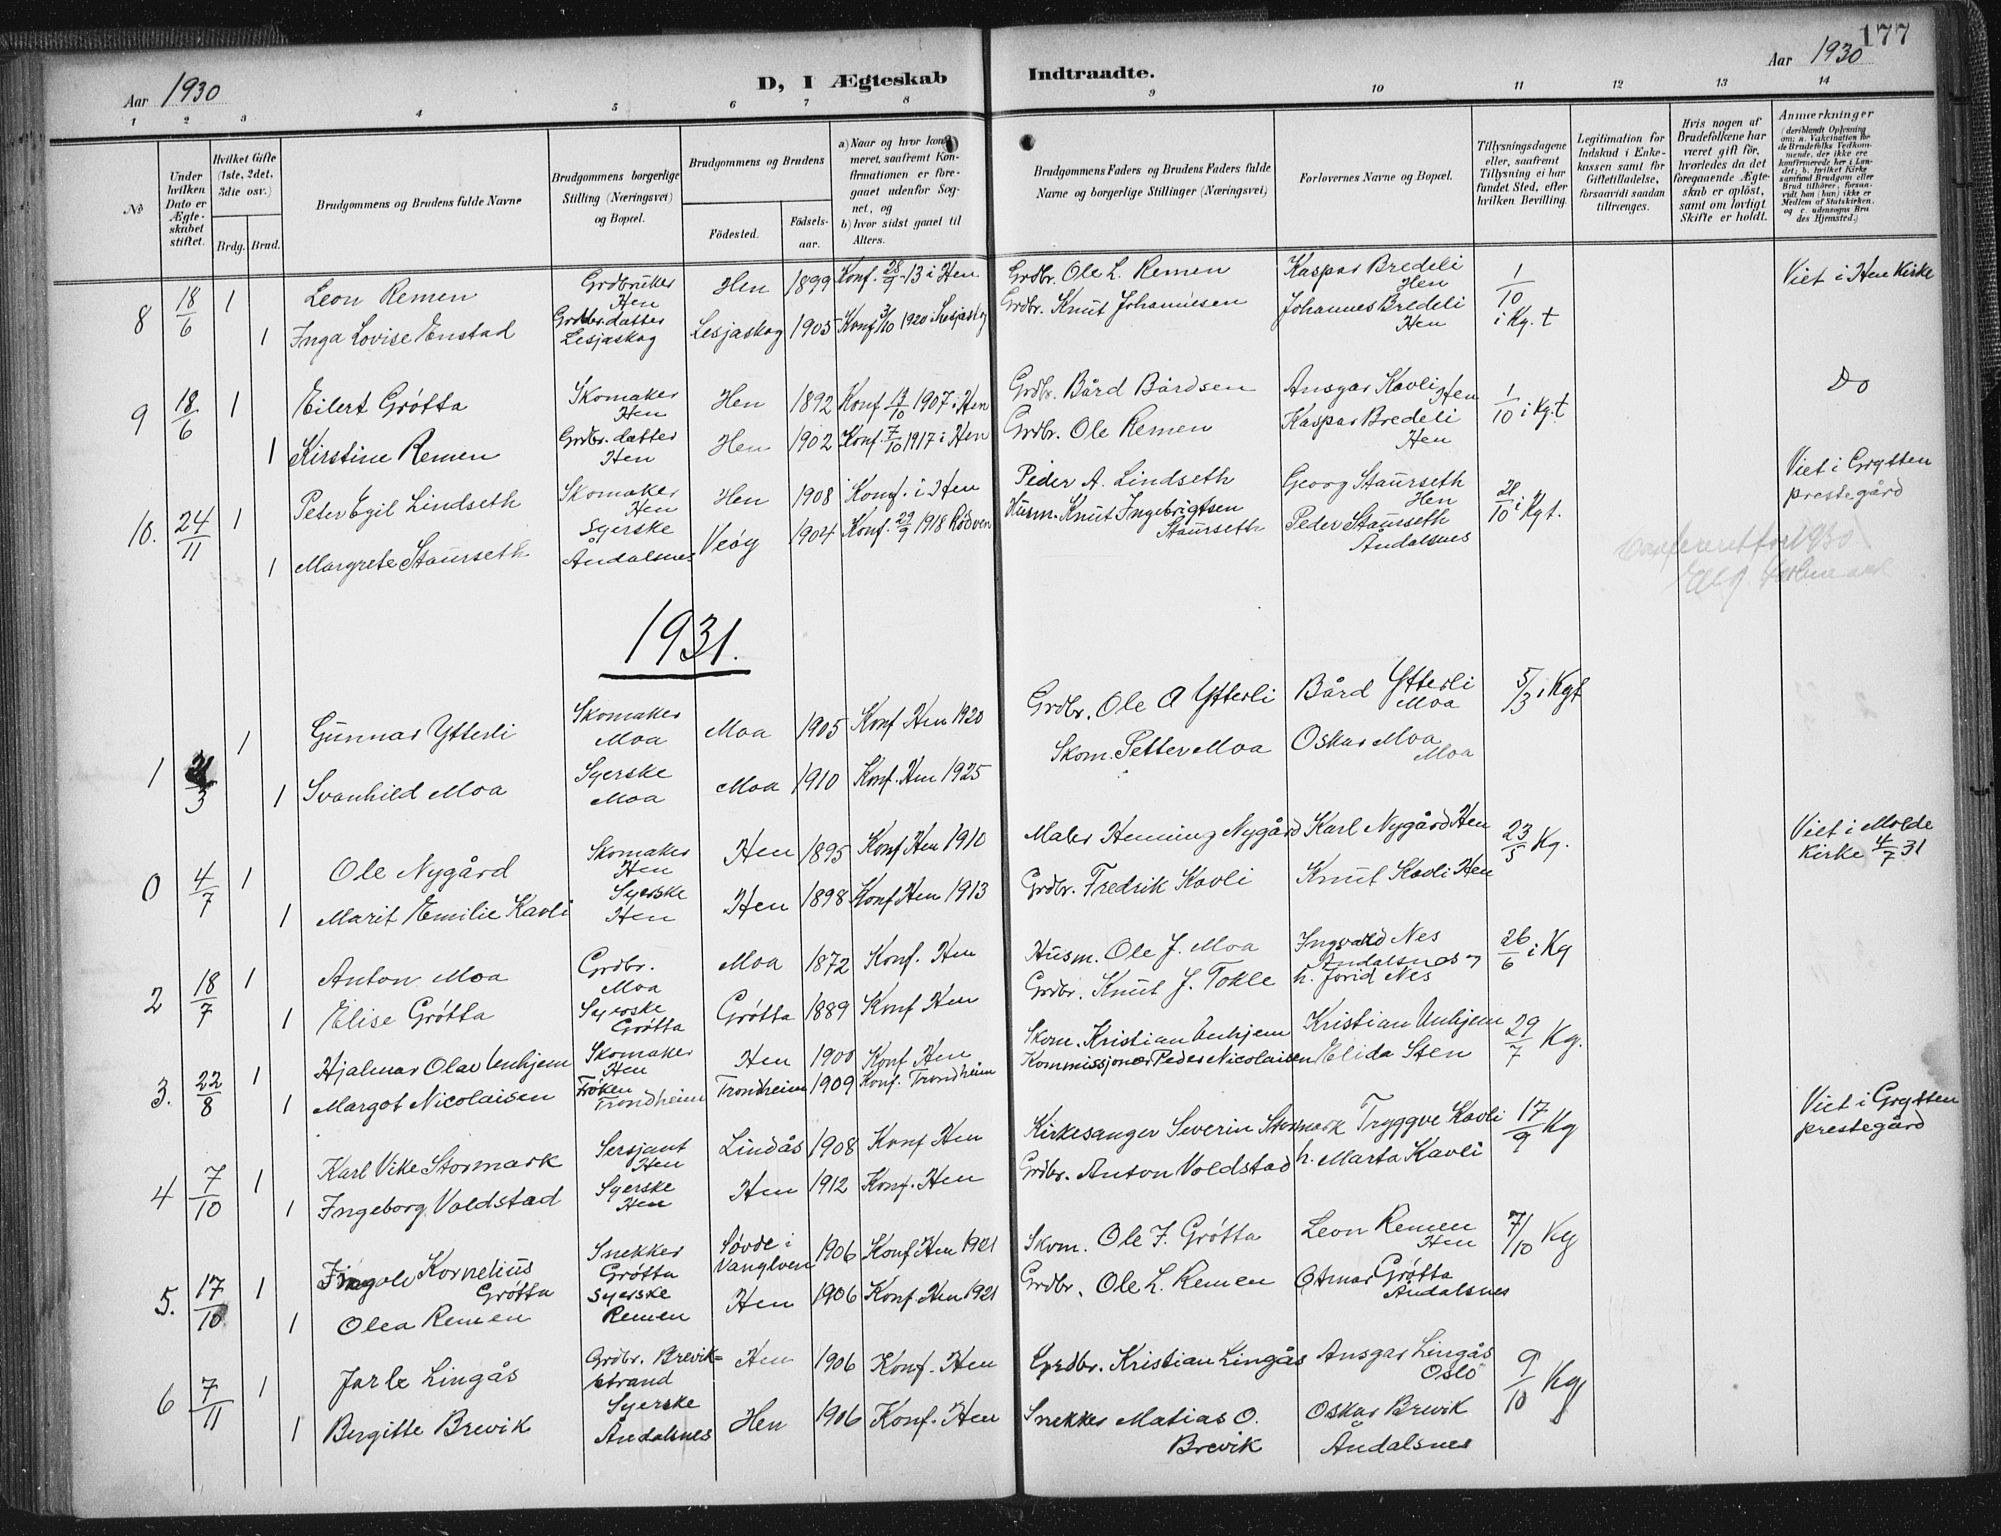 177
Aar 1930
D, I Ægteskab
Indtraadte.
Aar 1930
1 2 3 4 5 6 7 8 9 10 11 12 13 14
№
Under hvilken Dato er Ægteskabet stiftet.
Hvilket Gifte (1ste, 2det, 3die osv.)
Brdg. Brud.
Brudgommens og Brudens fulde Navne
Brudgommens borgerlige Stilling (Næringsvei) og Bopæl.
Brudgommens og Brudens
Fødested. Fødselsaar.
a) Naar og hvor konfirmeret, saafremt Konfirmationen er foregaaet udenfor Sognet, og
b) hvor sidst gaaet til Alters.
Brudgommens Faders og Brudens Faders fulde Navne og borgerlige Stillinger (Næringsvei)
Forlovernes Navne og Bopæl.
Tillysningsdagene eller, saafremt Tillysning ei har fundet Sted, efter hvilken Bevilling.
Legitimation for Indskud i Enkekassen samt for Giftetilladelse, forsaavidt saadan tiltrænges.
Hvis nogen af Brudefolkene har været gift før, hvorledes da det foregaaende Ægteskab er opløst, samt om lovligt Skifte er holdt.
Anmerkninger
8 18/6 1 Leon Remen Grdbruker Hen Hen 1899 Konf. 28/9-13 i Hen Grdbr. Ole L. Remen Kaspar Bredeli Hen 1/10 i Kg.t Viet i Hen Kirke
1 Inga Lovise Enstad Grdbr.datter Lesjaskog Lesjaskog 1905 Konf. 3/10 1920 Lesjaskog Grdbr. Knut Johannesen Johannes Bredeli Hen
9 18/6 1 Eilert Grøtta Skomaker Hen Hen 1892 Konf. 13/10 1907 i Hen Grdbr. Bård Bårdsen Ansgar Kavli Hen 1/10 i Kg.t Do
1 Kirstine Remen Grdbr. datter Hen Hen 1902 Konf. 7/10 1917 i Hen Grdbr. Ole Remen Kaspar Bredeli Hen
10. 24/11 1 Peter Egil Lindseth Skomaker Hen Hen 1908 Konf. i Hen Peder A. Lindseth Georg Staurseth Hen 21/10 i Kgt. Viet i Grytten prestegård
1 Margrete Staurseth Syerske Åndalsnes Veøy 1904 Konf. 29/9 1918 Rødven Husm. Knut Ingebrigtsen Staurseth Peder Staurseth Åndalsnes
1931.
1 21/3 1 Gunnar Ytterli Skomaker Moa Moa 1905 Konf Hen 1920 Grdbr. Ole A Ytterli Bård Ytterli Moa 5/3 i Kgt
1 Svanhild Moa Syerske Moa Moa 1910 Konf. Hen 1925 Skom. Petter Moa Oskar Moa Moa
0 4/7 1 Ole Nygård Skomaker Hen Hen 1895 Konf Hen 1910 Maler Henning Nygård Karl Nygård Hen 23/5 Kg. Viet i Molde kirke 4/7 31
1 Marit Emilie Kavli Syerske Hen Hen 1898 Konf Hen 1913 Grdbr. Fredrik Kavli Knut Kavli Hen
2 18/7 1 Anton Moa Grdbr. Moa Moa 1872 Konf. Hen Husm. Ole J. Moa Ingvald Nes Åndalsnes og 26/6 i Kg
1 Elise Grøtta Syerske Grøtta Grøtta 1889 Konf Hen Grdbr. Knut J. Tokle h. Jorid Nes
3. 22/8 1 Hjalmar Olav Unhjem Skomaker Hen Hen 1900 Konf Hen Skom. Kristian Unhjem Kristian Unhjem 29/7 Kg.
1 Margot Nicolaisen Frøken Trondheim Trondheim 1909 Konf. Trondheim Kommissjonær Peder Nicolaisen Elida Sten
4 7/10 1 Karl Vike Stormark Sersjant Hen Lindås 1908 Konf Hen Kirkesanger Severin Stormark Tryggve Kavli 17/9 Kg Viet i Grytten prestegård
1 Ingeborg Voldstad Syerske Hen Hen 1912 Konf. Hen Grdbr. Anton Voldstad h. Marta Kavli
5. 17/10 1 Kornelius Grøtta Snekker Grøtta Søvde i Vanylven 1906 Konf Hen 1921 Skom. Ole J. Grøtta Leon Remen Hen 7/10 Kg
1 Olea Remen Syerske Remen Hen 1906 Konf Hen 1921 Grdbr. Ole L. Remen Otmar Grøtta Åndalsnes
6 7/11 1 Jarle Lingås Grdbr. Brevikstrand Hen 1906 Konf. Hen Grdbr. Kristian Lingås Ansgar Lingås Oslo 9/10 Kg
1 Bergitte Brevik Syerske Åndalsnes Hen 1906 Konf. Hen Snekker Matias O. Brevik Oskar Brevik Åndalsnes